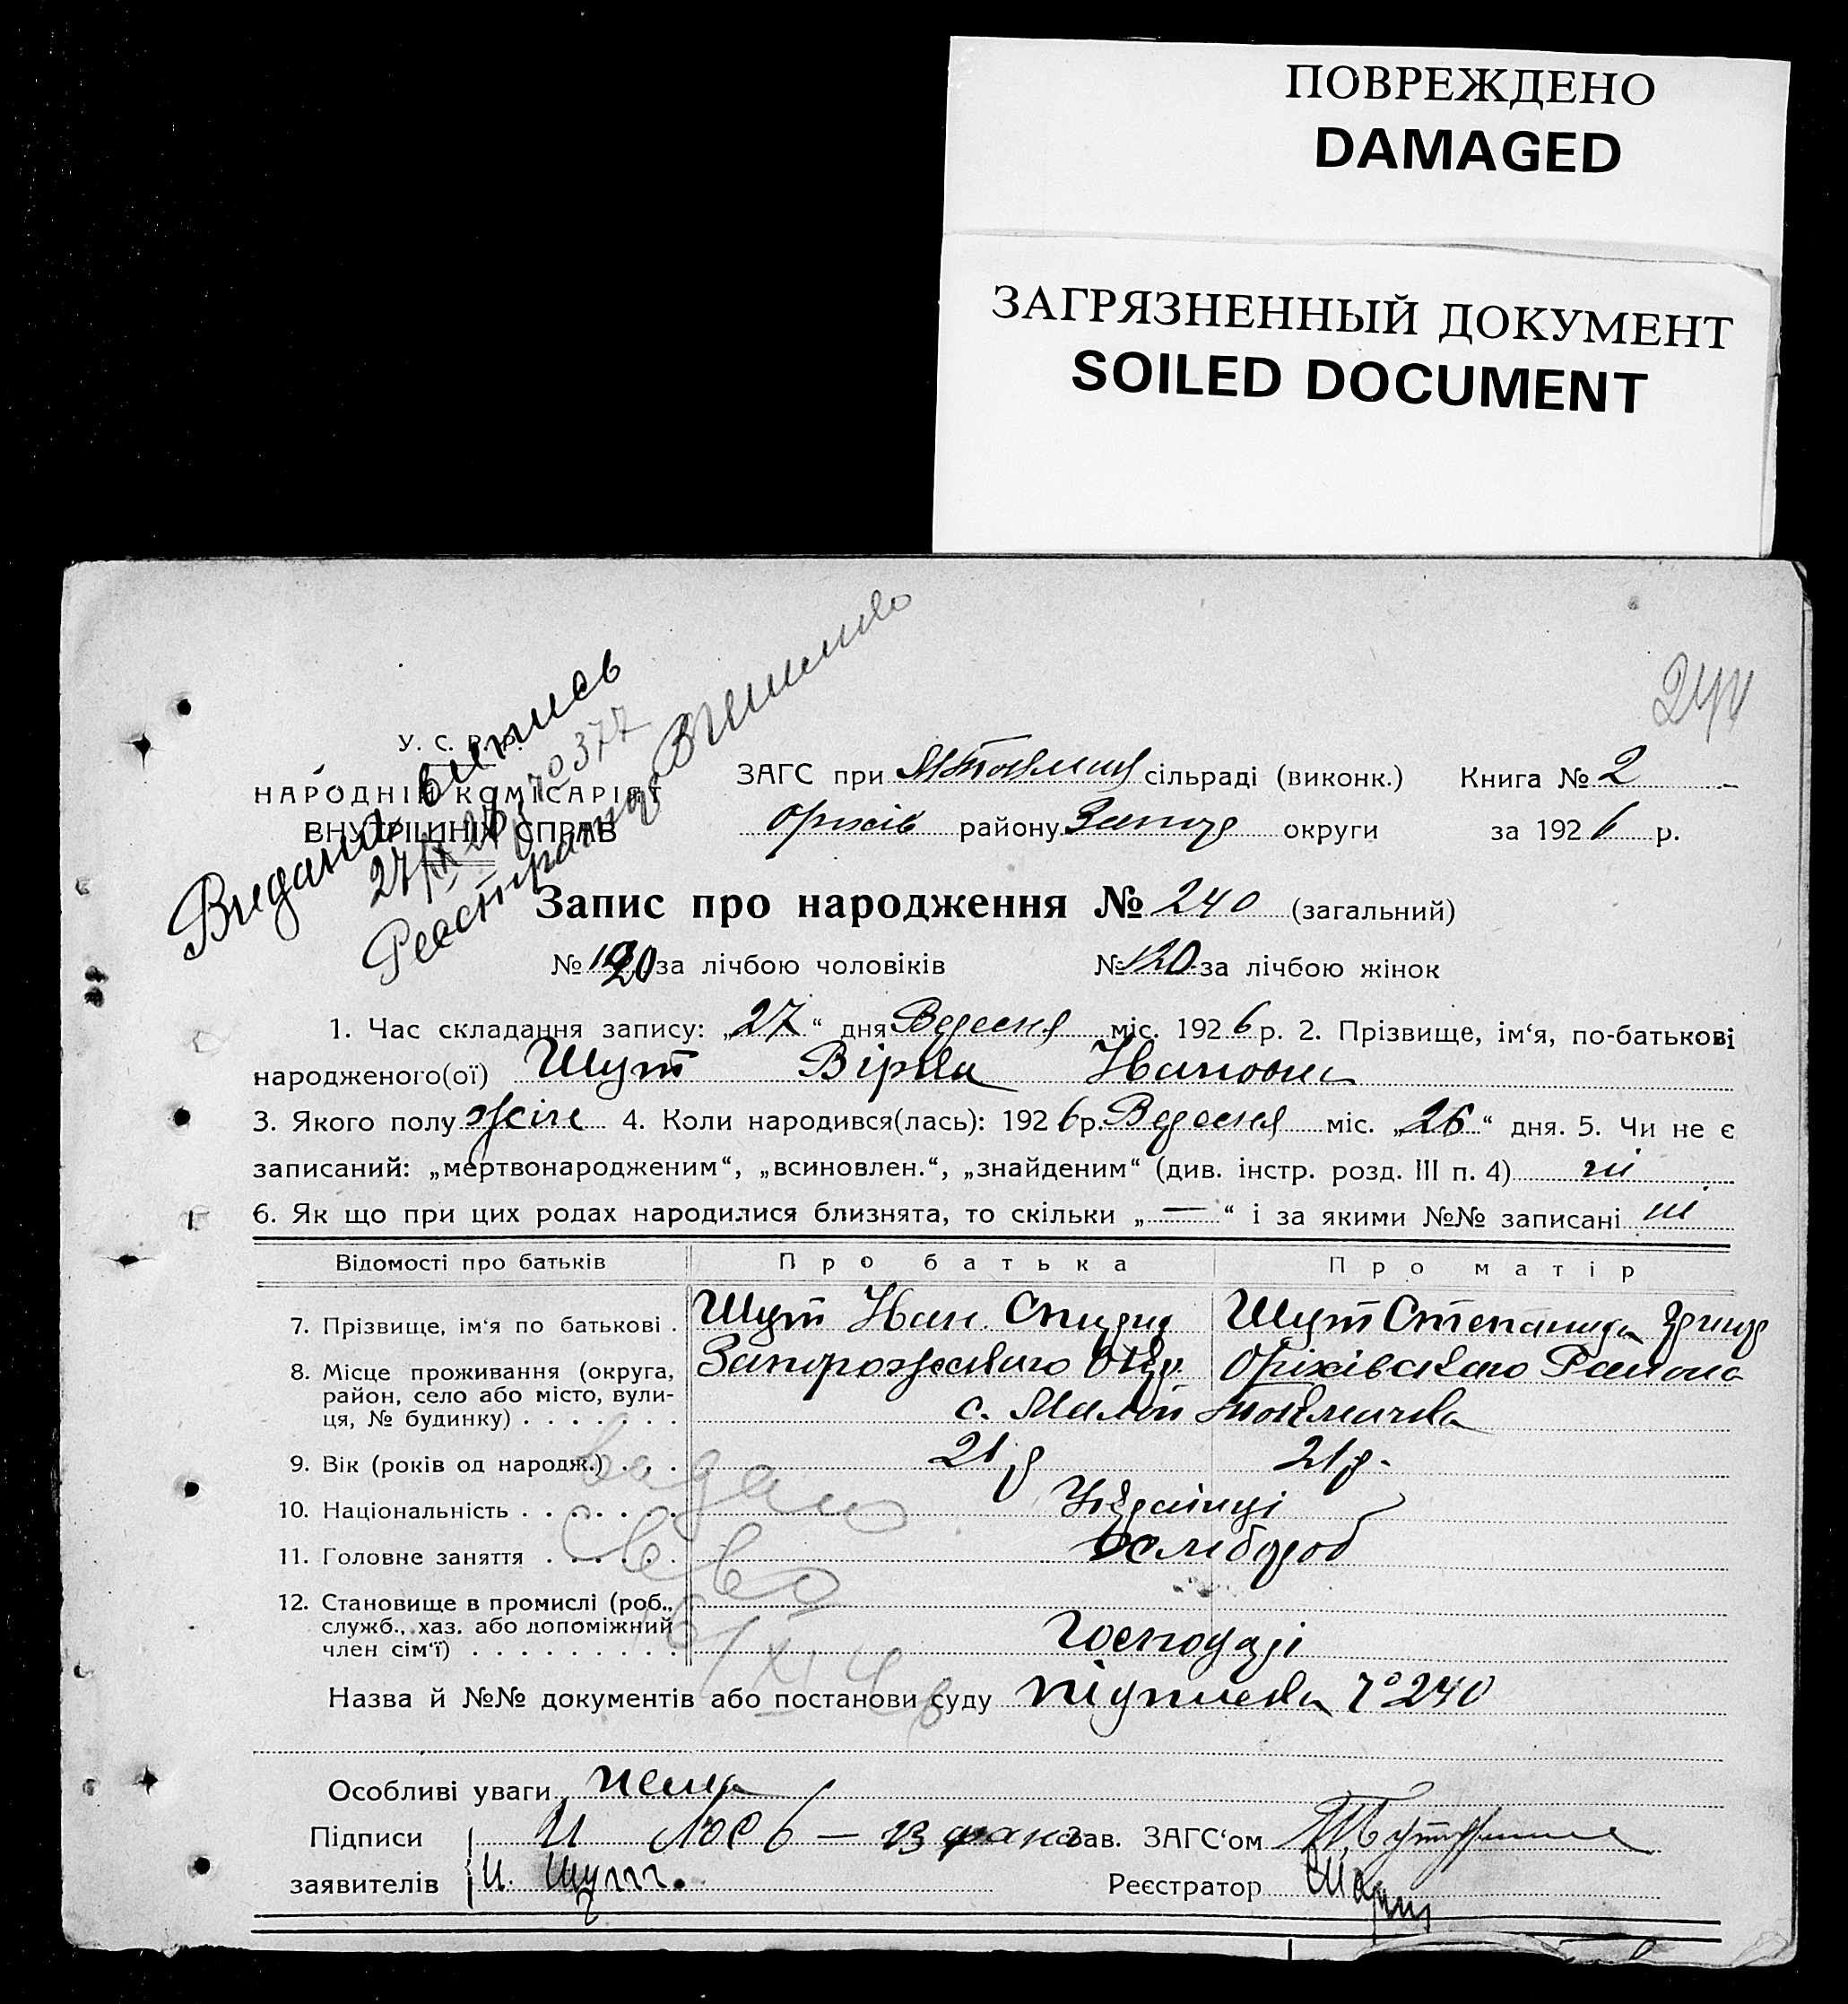 ПОВРЕЖДЕНО
DAMAGED
ЗАГРЯЗНЕННЫЙ ДОКУМЕНТ
SOILED DOCUMENT
240
У. С. Р. Р.
НАРОДНІЙ КОМІСАРІЯТ
ВНУТРІШНІХ СПРАВ
ЗАГС при сільраді (виконк.) Книга № 2
Оріхів району Запор округи за 1926 р.
Запис про народження № 240 (загальний)
№ 120 за лічбою чоловіків № 120 за лічбою жінок
1. Час складання запису: „27“ дня Вересня міс. 1926 р. 2. Прізвище, ім‘я, по-батькові
народженого(ої) Шут Вірка Івановна
3. Якого полу жін 4. Коли народився(лась): 1926 р. Вересня міс. „26“ дня. 5. Чи не є
записаний: „мертвонародженим“, „всиновлен.“, „знайденим“ (див. інстр. розд. III п. 4) ні
6. Як що при цих родах народилися близнята, то скільки „—“ і за якими №№ записані ні
Відомості про батьків Про батька Про матір
7. Прізвище, ім‘я по батькові . Шут Іван Спирид Шут Степанида
8. Місце проживання (округа, Запорожського Окр. Оріхівського Района
район, село або місто, вули-
ця, № будинку) . . . . . . . с. Малой Токмачка
9. Вік (років од народж.) . . . 21 р 21 р.
10. Національність . . . . . . . Українці
11. Головне заняття . . . . . . хлібороб
12. Становище в промислі (роб.,
служб., хаз. або допоміжний
член сім‘ї) . . . . . . . . . Господарі
Назва й №№ документів або постанови суду підписка № 240
Особливі уваги нема
Підписи зав. ЗАГС‘ом
заявителів И. Шут. Реєстратор